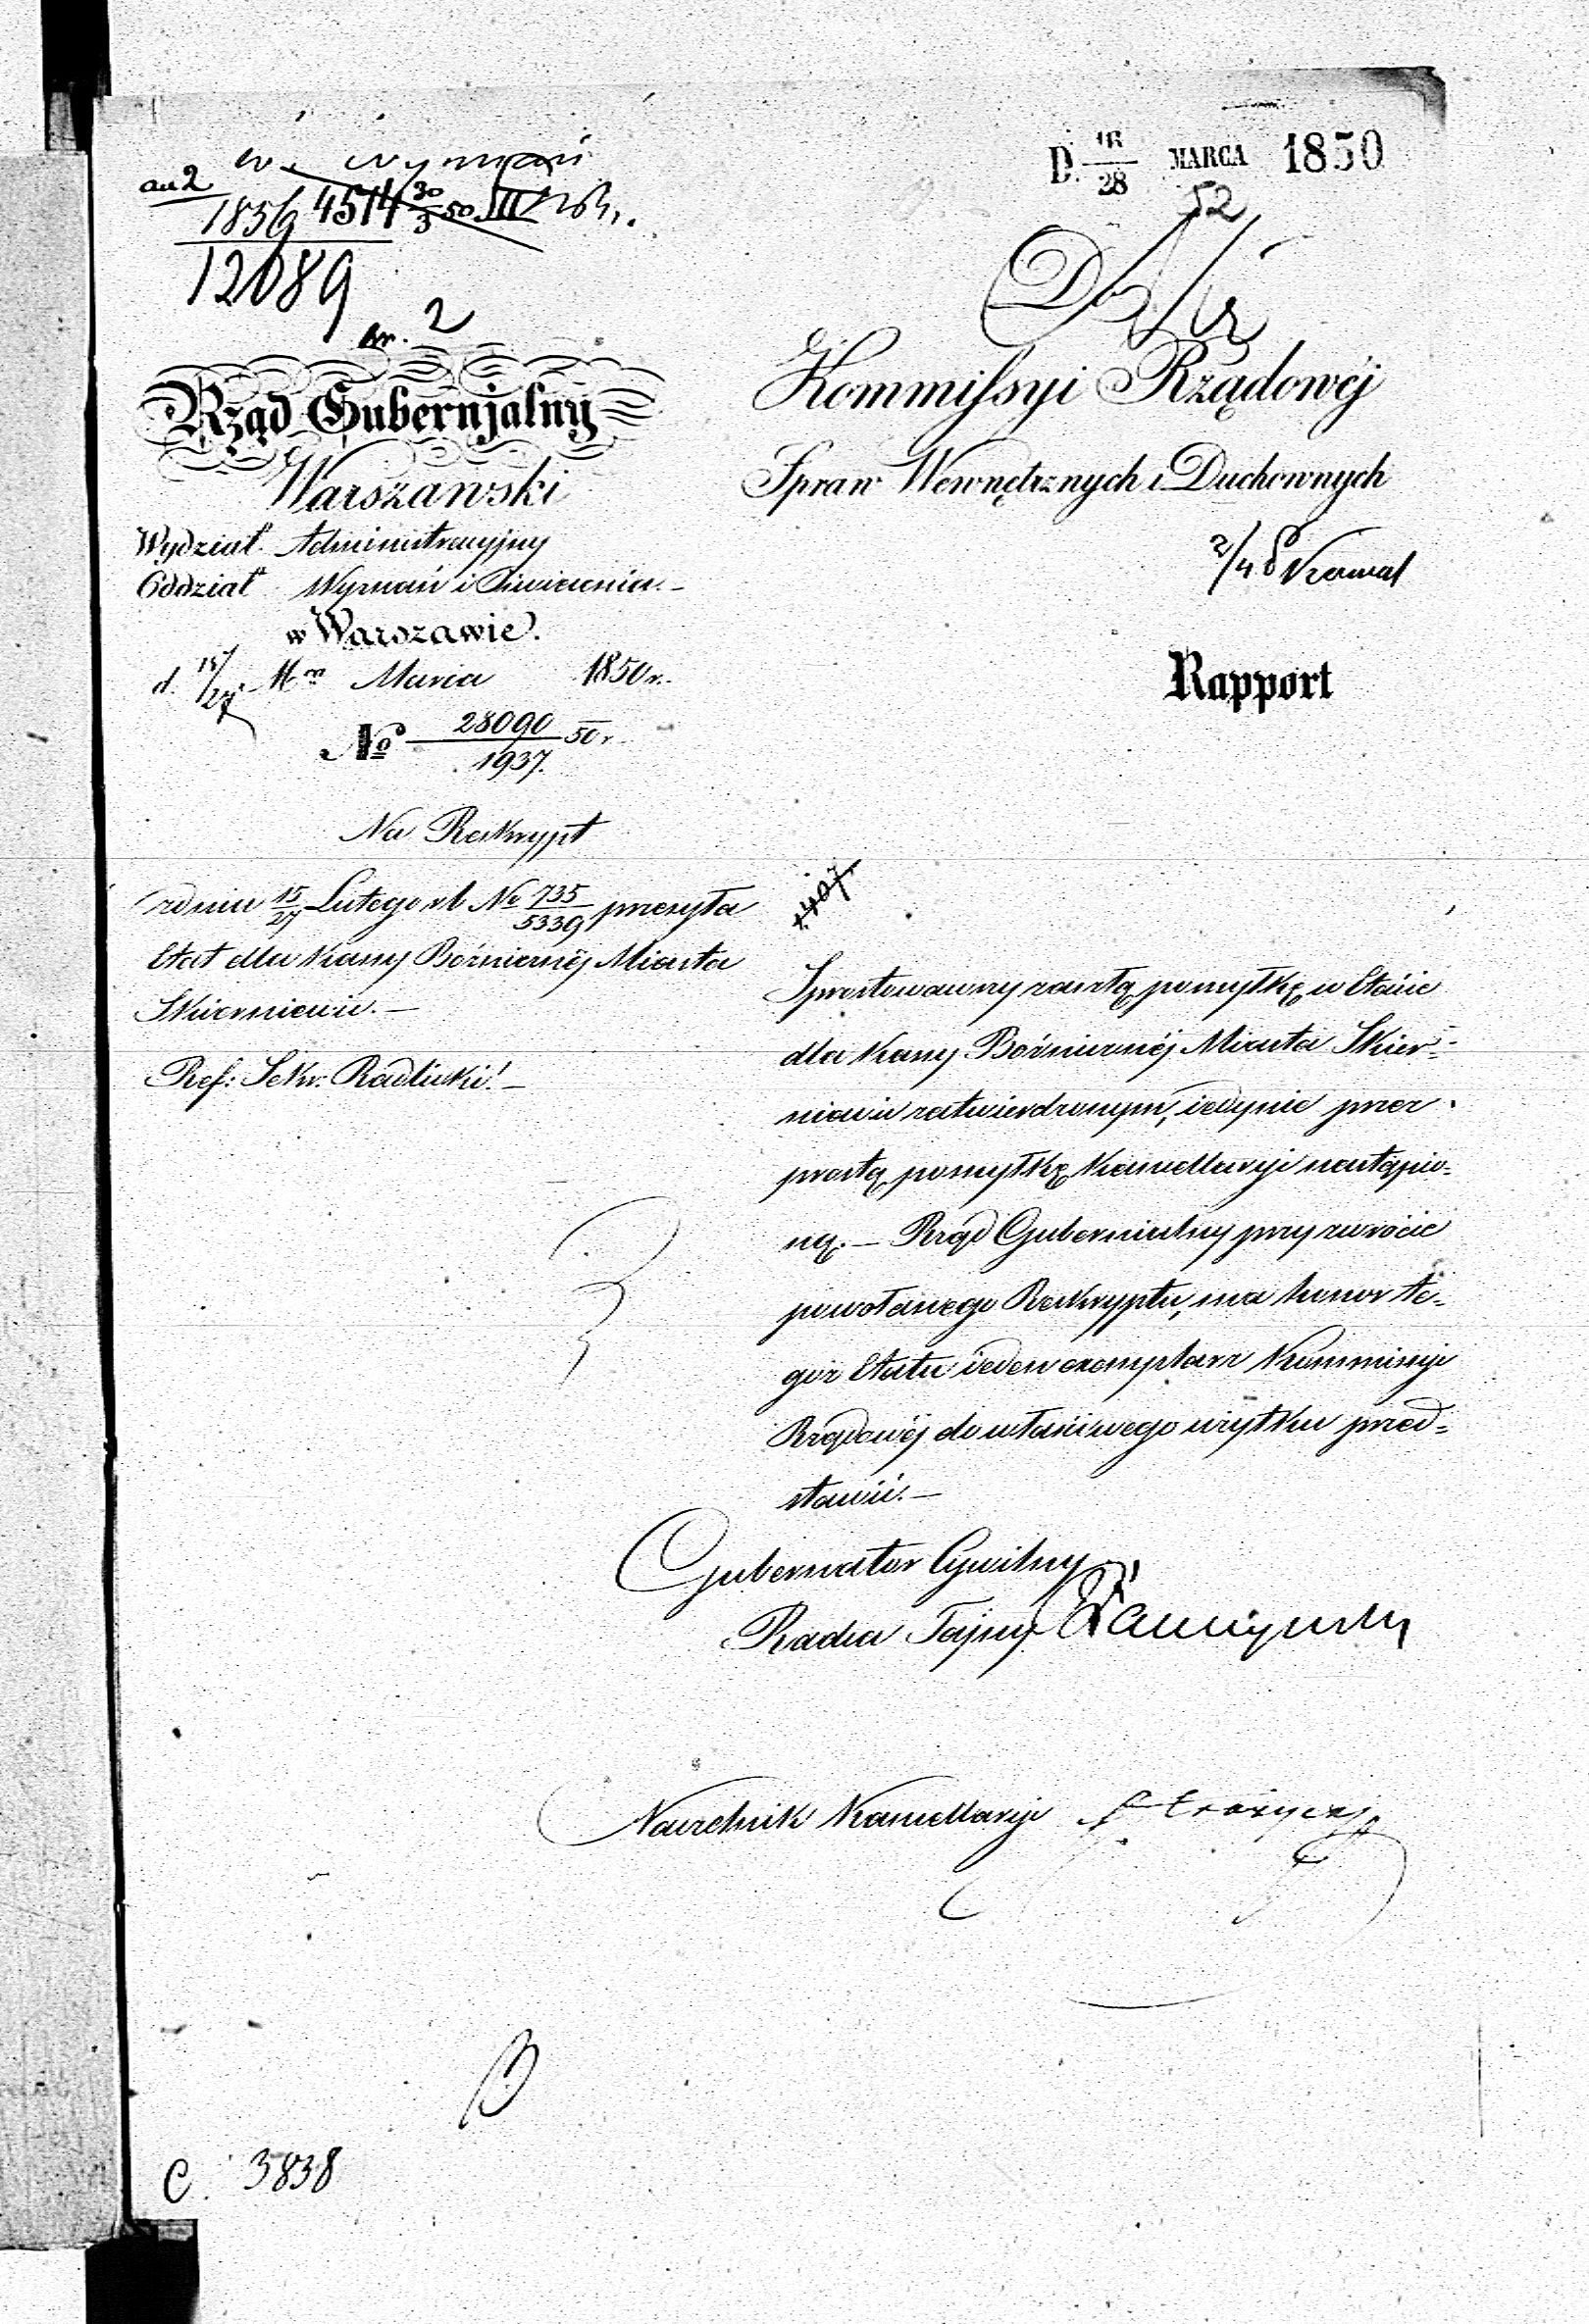 D. 16/28 MARCA 1850
52
W. Wyznań
1856 4514 30/3 50 III
12089
nr. 2
Rząd Gubernjalny
Warszawski
Wydział Administracyjny
Oddział Wyznań i
w Warszawie.
d. 15/27 Mca Marca 1850 r.
No 28090/1937. 50 r.
Na Reskrypt
z dnia 15/27 Lutego rb No 735/5339 przesyła
Etat dla Kassy Bóżnicznéj Miasta
Skierniewic. —
Ref: Sekr: Radlicki. —
Do
Kommissyi Rządowéj
Spraw Wewnętrznych i Duchownych
2/4
Rapport
Sprostowawszy zaszłą pomyłkę w Etacie
dla Kassy Bóżnicznéj Miasta Skier=
niewic zatwierdzonym, iedynie przez
prostą pomyłkę Kancellaryi nastąpio=
ną. — Rząd Gubernialny przy zwrócie
powołanego Reskryptu, ma honor te=
goż Etatu ieden exemplarz Kommissyi
Rządowéj do właściwego użytku przed=
stawić. —
Gubernator Cywilny
Radca Tajny
Naczelnik Kancellaryi
C. 3838